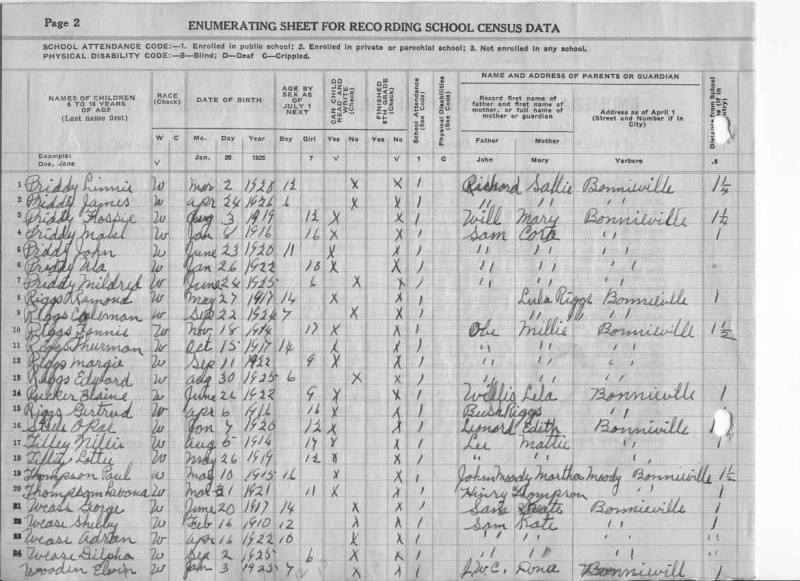 Page 2
ENUMERATING SHEET FOR RECORDING SCHOOL CENSUS DATA
SCHOOL ATTENDANCE CODE:—1. Enrolled in public school; 2. Enrolled in private or parochial school; 3. Not enrolled in any school.
PHYSICAL DISABILITY CODE:—B—Blind; D—Deaf C—Crippled.
NAMES OF CHILDREN 6 TO 18 YEARS OF AGE (Last name first) RACE (Check) DATE OF BIRTH AGE BY SEX AS OF JULY 1 NEXT CAN CHILD READ AND WRITE (Check) FINISHED 8TH GRADE (Check) School Attendance (See Code) Physical Disabilities (See Code) NAME AND ADDRESS OF PARENTS OR GUARDIAN Distance from School
Record first name of father and first name of mother, or full name of mother or guardian Address as of April 1 (Street and Number if in City)
W C Mo. Day Year Boy Girl Yes No Yes No Father Mother
Example: Doe, Jane V Jan. 20 1925 7 V V 1 C John Mary Yarboro .8
1 Priddy Linnie W Mar 2 1920 12 X X 1 Richard Sallie Bonnieville 1 1/4
2 Priddy James W Apr 24 1926 6 X X 1 " " " "
3 Priddy W Aug 3 1919 12 X X 1 Will Mary Bonnieville 1 1/2
4 Priddy Mabel W Jan 8 1916 16 X X 1 Sam Cora " " 1
5 Priddy John W June 23 1920 11 X X 1 " " " "
6 Priddy W Jan 26 1922 10 X X 1 " " " "
7 Priddy Mildred W June 24 1925 6 X X 1 " " " "
8 Riggs Ramond W May 27 1917 14 X X 1 Lula Riggs Bonnieville 1
9 Riggs Coleman W Sep 22 1924 7 X X 1 " " " "
10 Riggs Fannie W Nov 18 1914 17 X X 1 Obe Millie Bonnieville 1 1/2
11 Riggs Thurman W Oct 15 1917 14 X X 1 " " " "
12 Riggs Margie W Sep 11 1922 9 X X 1 " " " "
13 Riggs Edward W Aug 30 1925 6 X X 1 " " " "
14 Rucker Elaine W June 26 1922 9 X X 1 Willis Lela Bonnieville 1
15 Riggs Gertrud W Apr 6 1916 16 X X 1 Bush Riggs " "
16 O Rae W Jan 7 1920 12 X X 1 Leonard Edith Bonnieville 1
17 Tilley Millie W Aug 5 1914 17 X X 1 Lee Mattie " " 1
18 Tilley Lottie W May 26 1919 12 X X 1 " " " "
19 Thompson Paul W 10 1915 16 X X 1 John Moody Martha Moody Bonnieville 1 1/2
20 Thompson W 21 1921 11 X X 1 Henry Thompson " " 1
21 Wease George W June 20 1917 14 X X 1 Sam Kate Bonnieville 1
22 Wease Shelby W Feb 16 1910 12 X X 1 Sam Kate " " 1
23 Wease Adrian W Apr 16 1922 10 X X 1 " " " "
24 Wease Dilpha W Sep 2 1925 6 X X 1 " " " "
Wooden Elvin W Jan 3 1925 7 X X 1 J.W.C. Dona Bonnieville 1